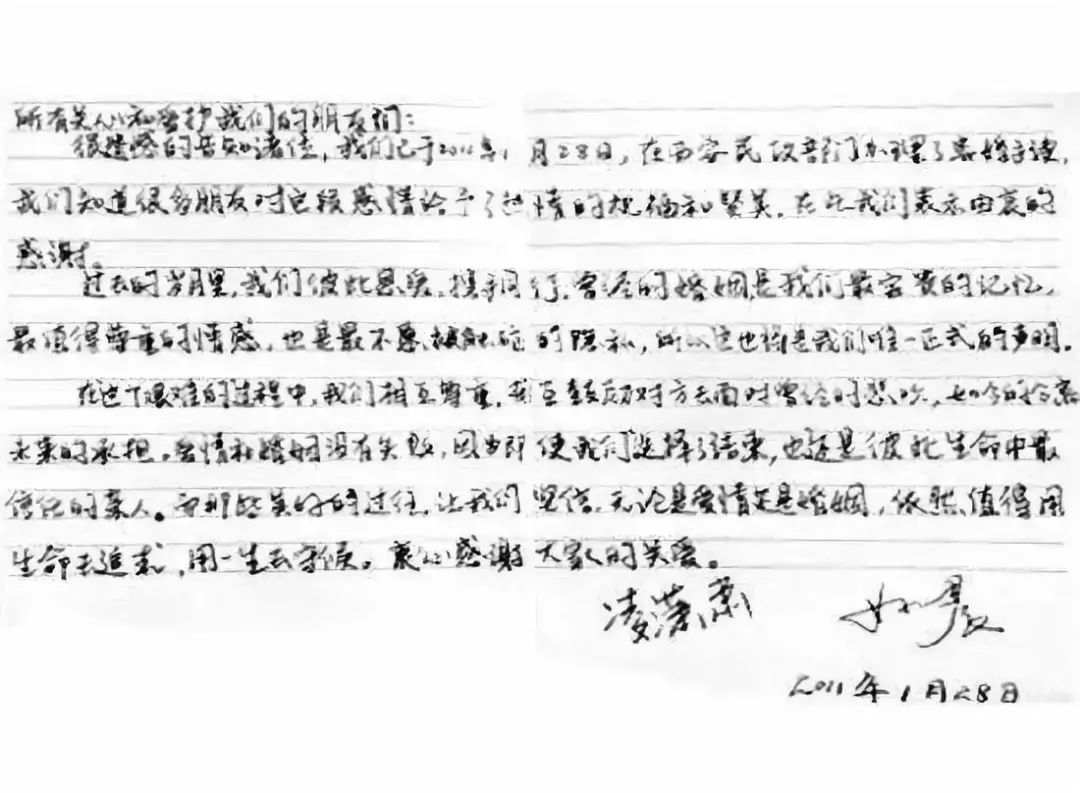 所有关心和爱护我们的朋友们：
很遗憾的告知诸位，我们已于2011年1月28日，在西安民政部门办理了离婚手续，
我们知道很多朋友对这段感情给予了热情的祝福和赞美，在此我们表示由衷的
感谢。
过去的岁月里，我们彼此恩爱，携手同行，曾经的婚姻是我们最宝贵的记忆，
最值得尊重的情感，也是最不愿被触碰的隐私，所以这也将是我们唯一正式的声明。
在这个艰难的过程中，我们相互尊重，相互鼓励对方去面对曾经的悲欢，如今的
未来的承担。爱情和婚姻没有失败，因为即使我们选择了结束，也还是彼此生命中最
信任的亲人。而那些美好的过往，让我们坚信，无论是爱情还是婚姻，依然值得用
生命去追求，用一生去守候。衷心感谢大家的关爱。
凌潇肃 姚晨
2011年1月28日